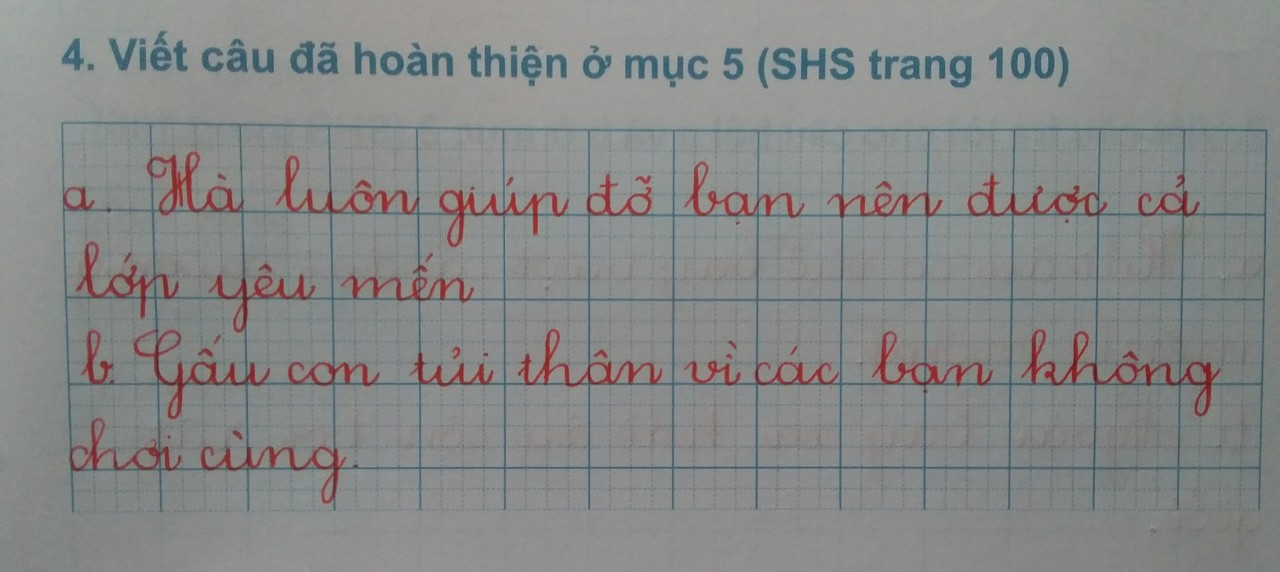 4. Viết câu đã hoàn thiện ở mục 5 (SHS trang 100)
a. Hà luôn giúp đỡ bạn nên được cả
lớp yêu mến
b. Gấu con tủi thân vì các bạn không
chơi cùng.